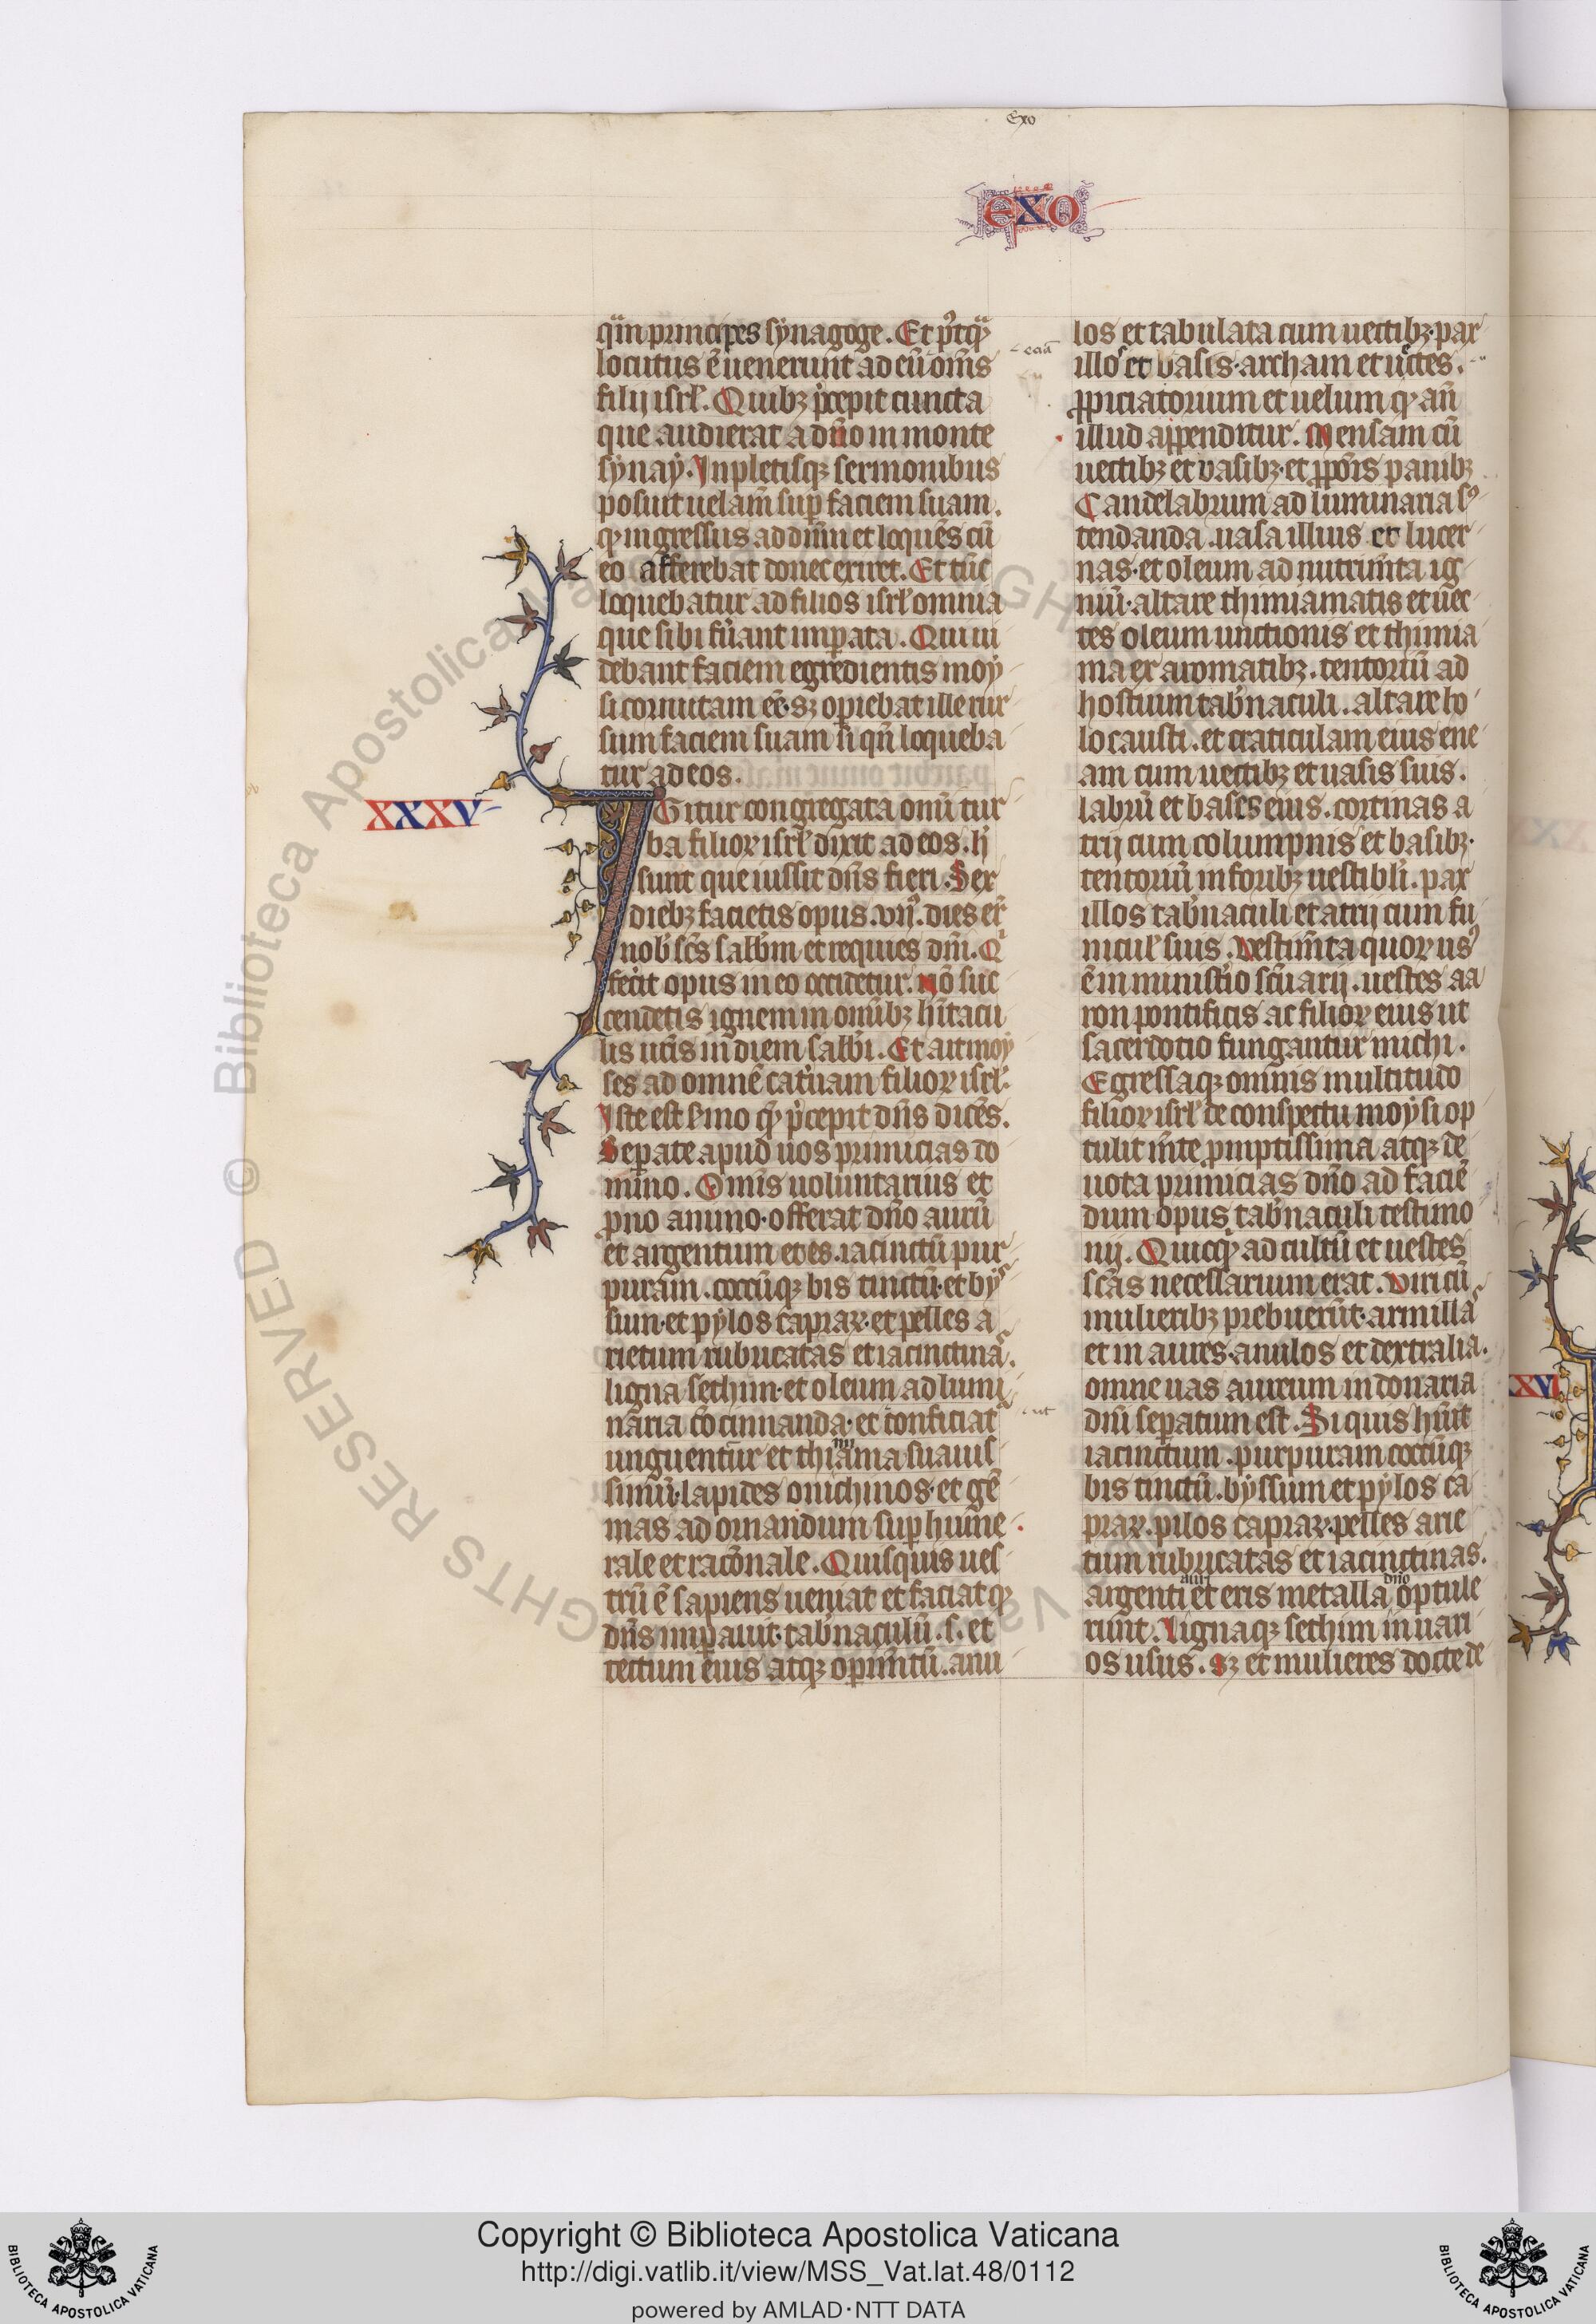 Exo
EXO
qͣm principes synagoge. Et p̾tqͣ
locutus ē uenerunt ad eū om̄s
filij isrl̓. Quibꝫ p̾cepit cuncta
que audierat a dn̄o in monte
synaẏ. Inpletisqꝫ sermonibus
posuit uelam̄ suꝑ faciem suam.
ingressus ad dn̄m et loquēs cū
eo afferebat donec exiret. Et tūc
loquebatur ad filios isrl̓ omnia
que sibi fūant imꝑata. Qui ui
debant faciem egredientis moẏ
si cornutam eē. sꝫ oꝑiebat ille rur
sum faciem suam si qn̄ loqueba
tur ad eos.
XXXV
IGitur congregata om̄i tur
ba filioꝝ isrl̓ dixit ad eos. h̓
sunt que iussit dn̄s fieri. Sex
diebꝫ facietis opus. vij᷒. dies er̄
uob̓ sc̄s sabb̓m et requies dn̄i. Qͥ
fecit opus in eo occidetur. Nō suc
cendetis ignem in om̄ibꝫ hītacu
lis ur̄is in diem sabb̓i. Et ait moẏ
ses ad omnē cat̓uam filioꝝ isrl̓.
Iste est s̓mo p̾cepit dn̄s dicēs.
Seꝑate apud uos primicias do
mino. Omīs uoluntarius et
ꝓno animo. offerat dn̄o aurū
et argentum et es. iacinctū pur
puram. coccūqꝫ bis tinctū. et bẏs
sun. et pẏlos capraꝝ. et pelles a
rietum rubricatas et iacinctinas.
ligna sethim. et oleum ad lumi
naria cōcinnanda. et conficiat᷑
ut
unguentū et thiamia suauis
simū. lapides onichinos. et gē
mas ad ornandum suꝑhume
rale et racōnale. Quisquis ues
trū ē sapiens ueniat et faciat qꝫ
dn̄s imꝑauit. tab̓naculū. s. et
tectum eius atqꝫ oꝑim̄tū. anu
los et tabulata cum uectibꝫ. pax
illos et basis. archam et uectes.
ꝓpiciatorium et uelum qͩ an̄
illud appenditur. Mensam cū
uectibꝫ et vasibꝫ. et ꝓpōis panibꝫ
Candelabrum ad luminaria sꝰ
tendanda. uasa illius et lucer
nas. et oleum ad nutrim̄ta ig
niū. altare thimiamatis et uec
tes oleum unctionis et thimia
ma ex aromatibꝫ. tentoriū ad
hostium tab̓naculi. altare ho
locausti. et craticulam eius ene
am cum uectibꝫ et uasis suis.
labrū et bases eius. cortinas a
trij cum columpnis et basibꝫ.
tentoriū in foribꝫ uestibl̓i. pax
illos tab̓naculi et atrij cum fu
nicul̓ suis. Vestim̄ta quoꝝ usꝰ
ē in minist̓io sc̄uarij. uestes aa
ron pontificis ac filioꝝ eius ut
sacerdotio fungantur michi.
Egressaqꝫ omnis multitudo
filioꝝ isrl̓ de conspectu moẏsi op
tulit m̄te ꝓmptissima atqꝫ de
uota primicias dn̄o ad faciē
dum opus tab̓naculi testimo
nij. Quicqͩ ad cultū et uestes
sc̄as necessarium erat. Viri cū
mulieribꝫ prebuerūt. armillas
et in aures. anulos et dextralia.
omne uas aureum in donaria
dn̄i seꝑatum est. Si quis hūit
iacinctum. purpuram coccūqꝫ
bis tinctū. bẏssum et pẏlos ca
praꝝ. pilos capraꝝ. pelles arie
tum rubricatas et iacinctinas.
argenti et eris metalla dn̄o optule
runt. Lignaqꝫ sethim in uari
os usus. Sꝫ et mulieres docte de
XVI
© Biblioteca Apostolica Vaticana ALL RIGHTS RESERVED
Copyright © Biblioteca Apostolica Vaticana
http://digi.vatlib.it/view/MSS_Vat.lat.48/0112
powered by AMLAD·NTT DATA
BIBLIOTECA APOSTOLICA VATICANA
BIBLIOTECA APOSTOLICA VATICANA